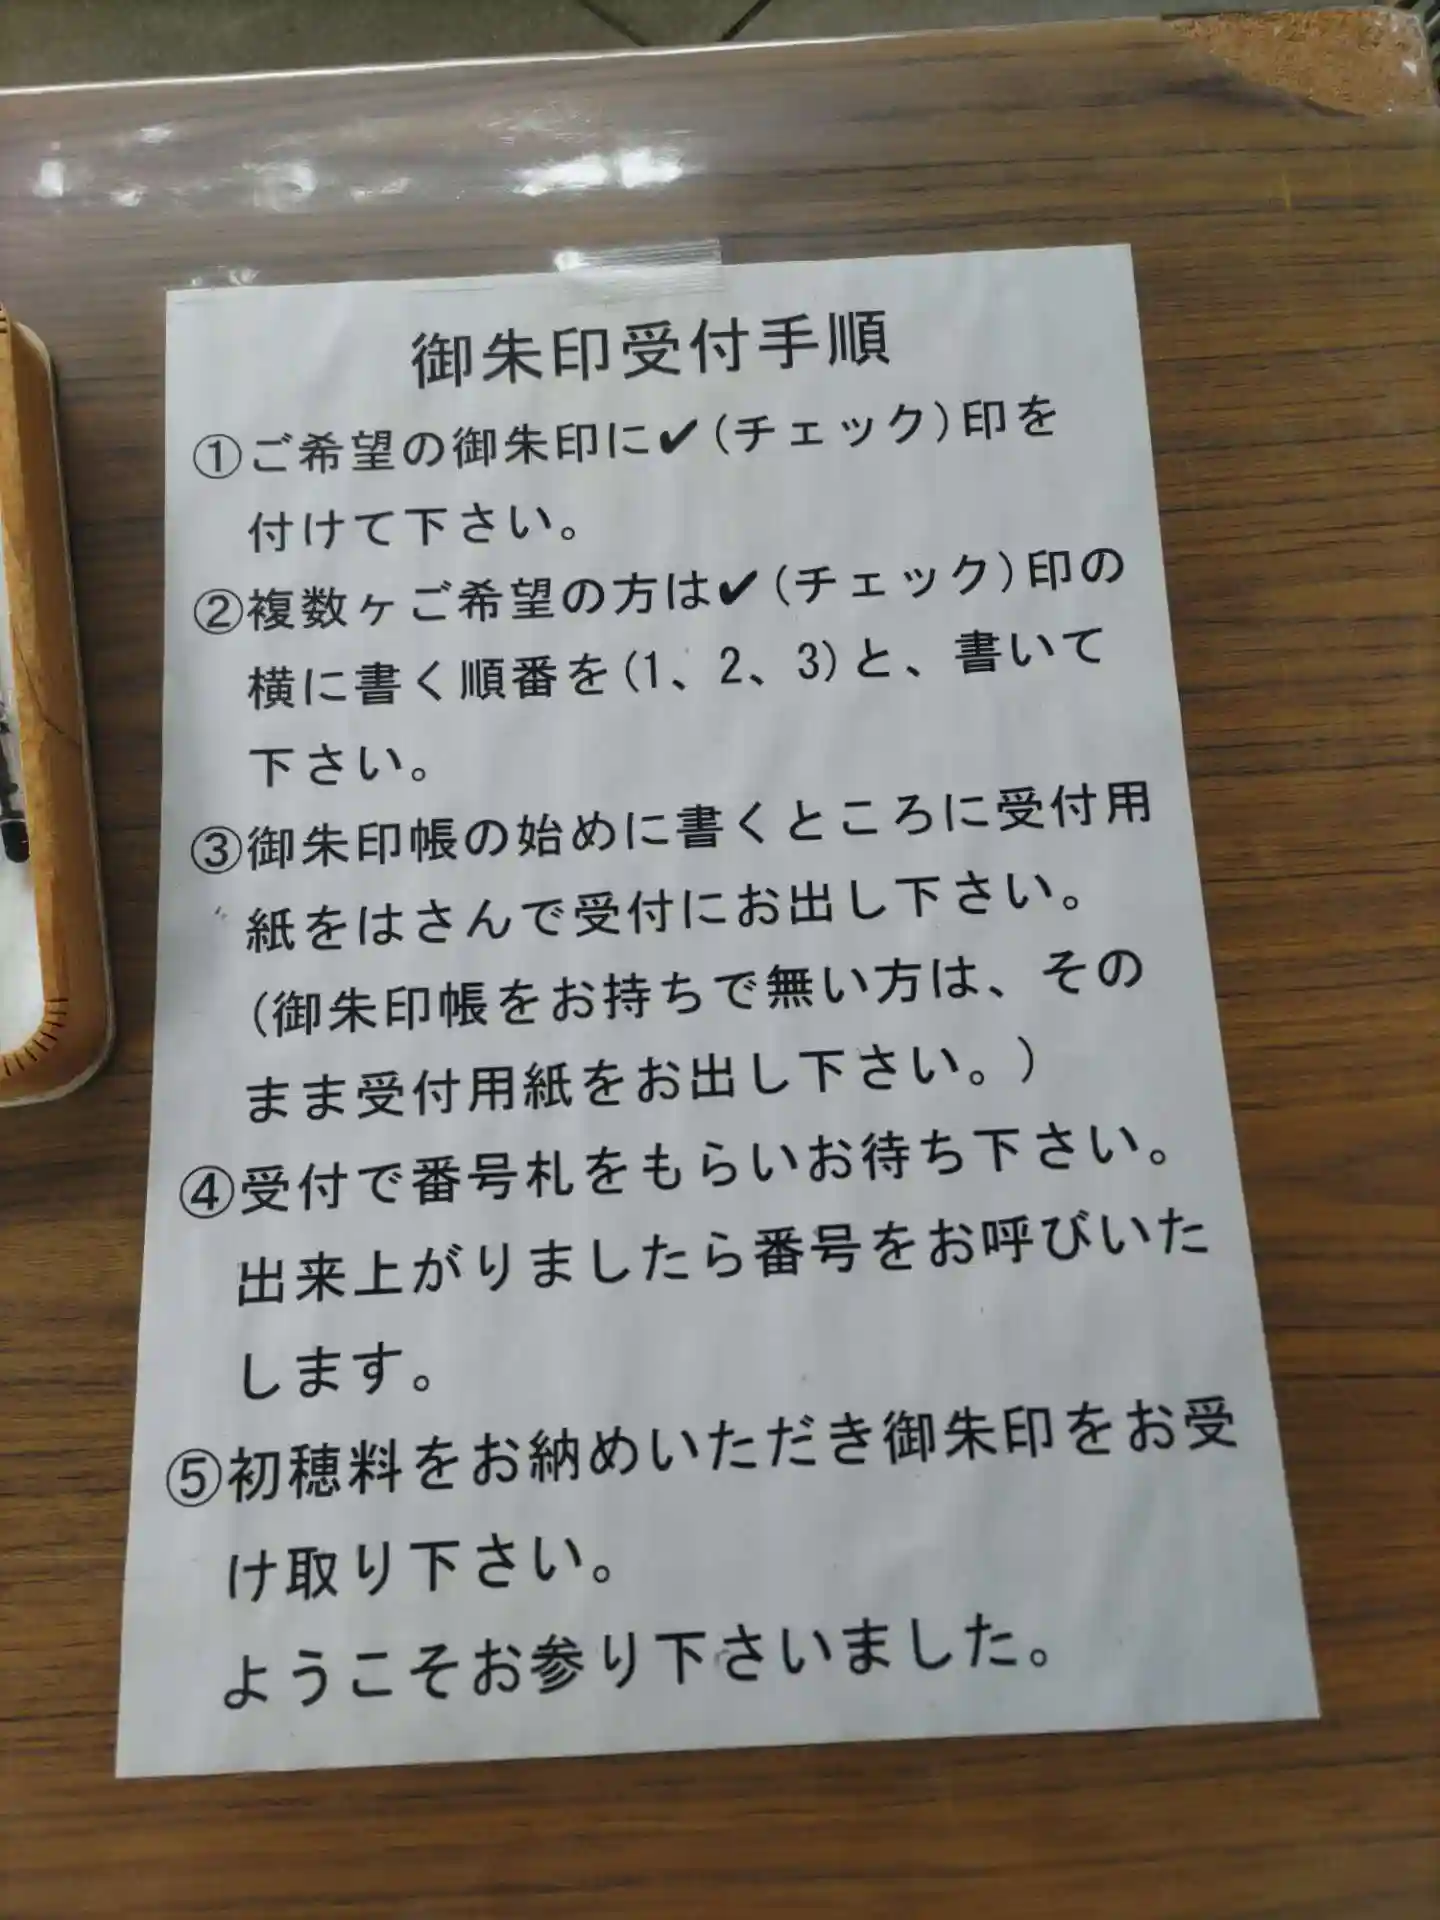 御朱印受付手順
①ご希望の御朱印に✔(チェック)印を
付けて下さい。
②複数ヶご希望の方は✔(チェック)印の
横に書く順番を(1、2、3)と、書いて
下さい。
③御朱印帳の始めに書くところに受付用
紙をはさんで受付にお出し下さい。
(御朱印帳をお持ちで無い方は、その
まま受付用紙をお出し下さい。)
④受付で番号札をもらいお待ち下さい。
出来上がりましたら番号をお呼びいた
します。
⑤初穂料をお納めいただき御朱印をお受
け取り下さい。
ようこそお参り下さいました。